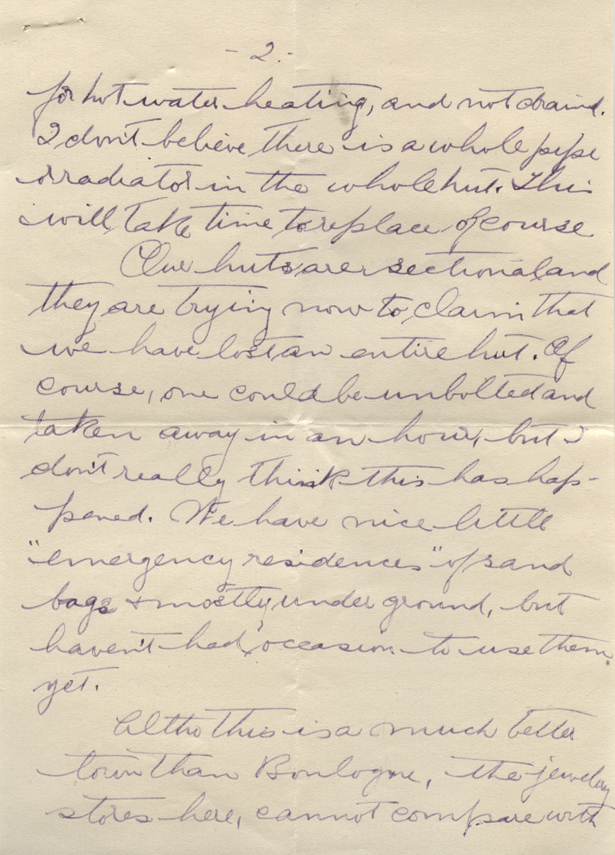 - 2. -
for hot water heating, and not drained.
I don't believe there is a whole pipe
or radiator in the whole hut. This
will take time to replace of course
Our huts are sectional and
they are trying now to claim that
we have lost an entire hut. Of
course, one could be unbolted and
taken away in an hour, but I
don't really think this has hap-
pened. We have nice little
"emergency residences" of sand
bags & mostly under ground, but
haven't had occasion to use them
yet.
Altho this is a much better
town than Boulogne, the jewelry
stores here, cannot compare with